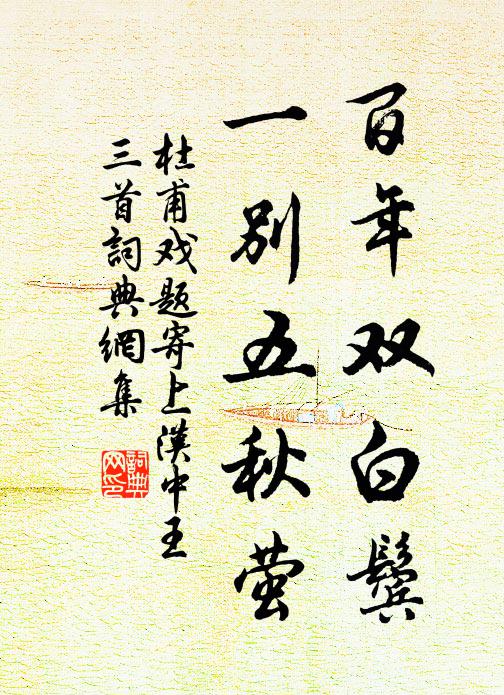 百年双白鬓
一别五秋萤
杜甫戏题寄上漢中王
三首詞典網集
詞典网印